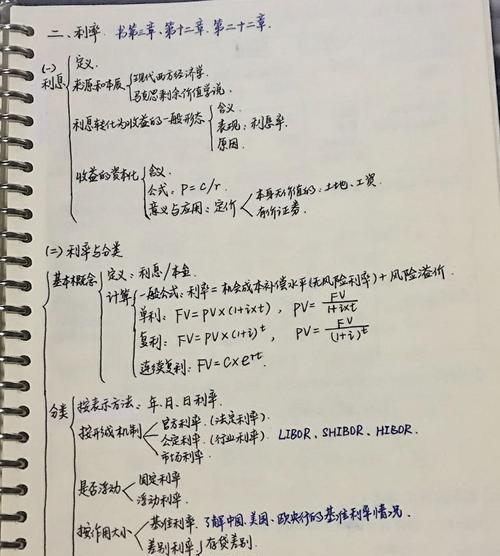 二、利率. 书第三章、第十二章. 第二十二章.
(一)利息
定义.
来源和本质
现代西方经济学.
马克思剩余价值学说.
利息转化为收益的一般形态
含义.
表现: 利息率.
原因.
收益的资本化
含义.
公式: P = C/r.
意义与应用: 定价
本身无价值的: 土地、工资.
有价证券.
(二) 利率与分类
基本概念
定义: 利息/本金
计算
一般公式: 利率 = 机会成本补偿水平(无风险利率) + 风险溢价.
单利: FV = PV×(1+i×t), PV = FV/1+i×t
复利: FV = PV×(1+i)^t, PV = FV/(1+i)^t
连续复利: FV = C×e^rt.
分类
按表示方法: 年、月、日利率.
按形成机制
官方利率. (法定利率).
公定利率. (行业利率). LIBOR、SHIBOR、HIBOR.
市场利率.
是否浮动
固定利率
浮动利率.
按作用大小
基准利率. 了解中国、美国、欧央行的基准利率情况.
差别利率 存贷差别.